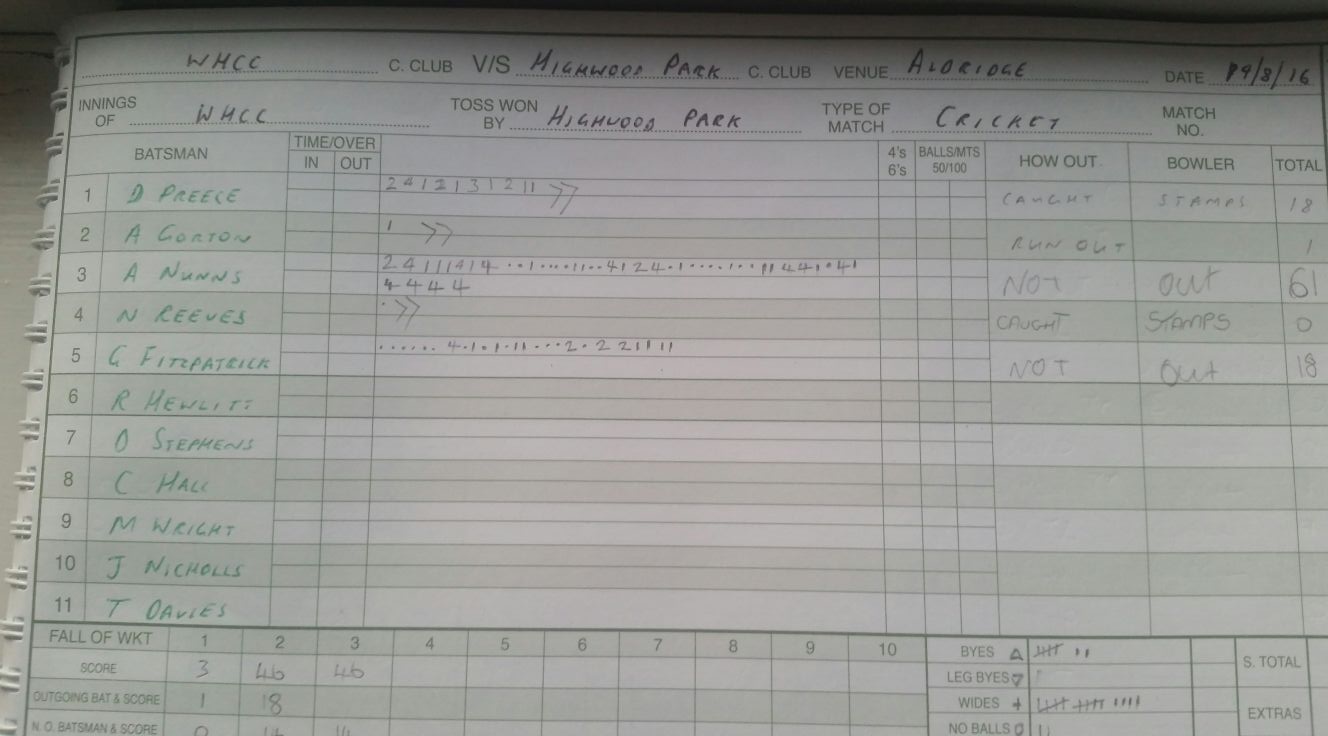 WHCC C. CLUB V/S HIGHWOOD PARK C. CLUB VENUE ALDRIDGE DATE 19/8/16
INNINGS OF WHCC TOSS WON BY HIGHWOOD PARK TYPE OF MATCH CRICKET MATCH NO.
BATSMAN TIME/OVER IN OUT 4's 6's BALLS/MTS 50/100 HOW OUT BOWLER TOTAL
1 D PREECE 2 4 1 2 1 3 1 2 1 1 >> CAUGHT STAMPS 18
2 A GORTON 1 >> RUN OUT 1
3 A NUNNS 2 4 1 1 1 4 1 4 · · 1 · · · · 1 1 · · 4 1 2 4 · 1 · · · · 1 · · 1 1 4 4 1 · 4 1 NOT OUT 61
4 4 4 4
4 N REEVES · >> CAUGHT STAMPS 0
5 G FITZPATRICK · · · · · · 4 · 1 · 1 · 1 1 · · · 2 · 2 2 1 1 1 1 NOT OUT 18
6 R HEWLITT
7 O STEPHENS
8 C HALL
9 M WRIGHT
10 J NICHOLLS
11 T DAVIES
FALL OF WKT 1 2 3 4 5 6 7 8 9 10 BYES △ S. TOTAL
SCORE 3 46 46 LEG BYES ▽
OUTGOING BAT & SCORE 1 18 WIDES + EXTRAS
N. O. BATSMAN & SCORE NO BALLS O